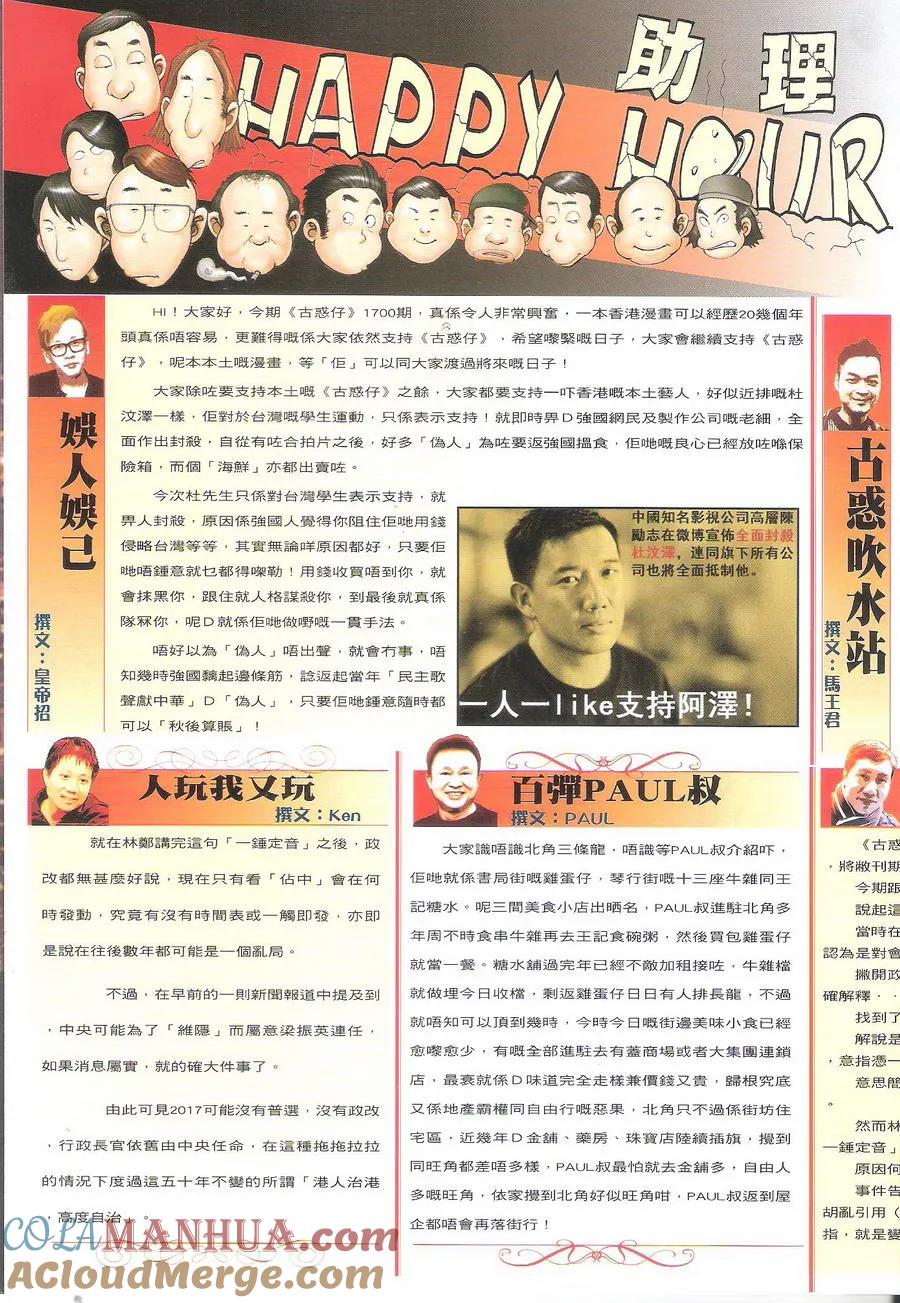 HAPPY 助理 HOUR
娛人娛己
撰文：皇帝招
HI！大家好，今期《古惑仔》1700期，真係令人非常興奮，一本香港漫畫可以經歷20幾個年
頭真係唔容易，更難得嘅係大家依然支持《古惑仔》，希望嚟緊嘅日子，大家會繼續支持《古惑
仔》，呢本本土嘅漫畫，等「佢」可以同大家渡過將來嘅日子！
大家除咗要支持本土嘅《古惑仔》之餘，大家都要支持一吓香港嘅本土藝人，好似近排嘅杜
汶澤一樣，佢對於台灣嘅學生運動，只係表示支持！就即時畀D強國網民及製作公司嘅老細，全
面作出封殺，自從有咗合拍片之後，好多「偽人」為咗要返強國搵食，佢哋嘅良心已經放咗喺保
險箱，而個「海鮮」亦都出賣咗。
今次杜先生只係對台灣學生表示支持，就
畀人封殺，原因係強國人覺得你阻住佢哋用錢
侵略台灣等等，其實無論咩原因都好，只要佢
哋唔鍾意就乜都得㗎勒！用錢收買唔到你，就
會抹黑你，跟住就人格謀殺你，到最後就真係
隊冧你，呢D就係佢哋做嘢嘅一貫手法。
唔好以為「偽人」唔出聲，就會冇事，唔
知幾時強國黐起邊條筋，諗返起當年「民主歌
聲獻中華」D「偽人」，只要佢哋鍾意隨時都
可以「秋後算賬」！
中國知名影視公司高層陳
勵志在微博宣佈全面封殺
杜汶澤，連同旗下所有公
司也將全面抵制他。
一人一like支持阿澤！
古惑吹水站
撰文：馬王君
人玩我又玩
撰文：Ken
就在林鄭講完這句「一錘定音」之後，政
改都無甚麼好說，現在只有看「佔中」會在何
時發動，究竟有沒有時間表或一觸即發，亦即
是說在往後數年都可能是一個亂局。
不過，在早前的一則新聞報道中提及到
，中央可能為了「維隱」而屬意梁振英連任，
如果消息屬實，就的確大件事了。
由此可見2017可能沒有普選，沒有政改
，行政長官依舊由中央任命，在這種拖拖拉拉
的情況下度過這五十年不變的所謂「港人治港
，高度自治」。
百彈PAUL叔
撰文：PAUL
大家識唔識北角三條龍，唔識等PAUL叔介紹吓，
佢哋就係書局街嘅雞蛋仔，琴行街嘅十三座牛雜同王
記糖水。呢三間美食小店出晒名，PAUL叔進駐北角多
年周不時食串牛雜再去王記食碗粥，然後買包雞蛋仔
就當一餐。糖水舖過完年已經不敵加租接咗，牛雜檔
就做埋今日收檔，剩返雞蛋仔日日有人排長龍，不過
就唔知可以頂到幾時，今時今日嘅街邊美味小食已經
愈嚟愈少，有嘅全部進駐去有蓋商場或者大集團連鎖
店，最衰就係D味道完全走樣兼價錢又貴，歸根究底
又係地產霸權同自由行嘅惡果，北角只不過係街坊住
宅區，近幾年D金舖、藥房、珠寶店陸續插旗，攪到
同旺角都差唔多樣，PAUL叔最怕就去金舖多，自由人
多嘅旺角，依家攪到北角好似旺角咁，PAUL叔返到屋
企都唔會再落街行！
《古惑
，將敝刊期
今期跟
說起這
當時在
認為是對會
撇開政
確解釋．．
找到了
解說是
，意指憑一
意思簡
。
然而林
一錘定音」
原因何
事件告
胡亂引用（
指，就是變
COLAMANHUA.com
ACloudMerge.com